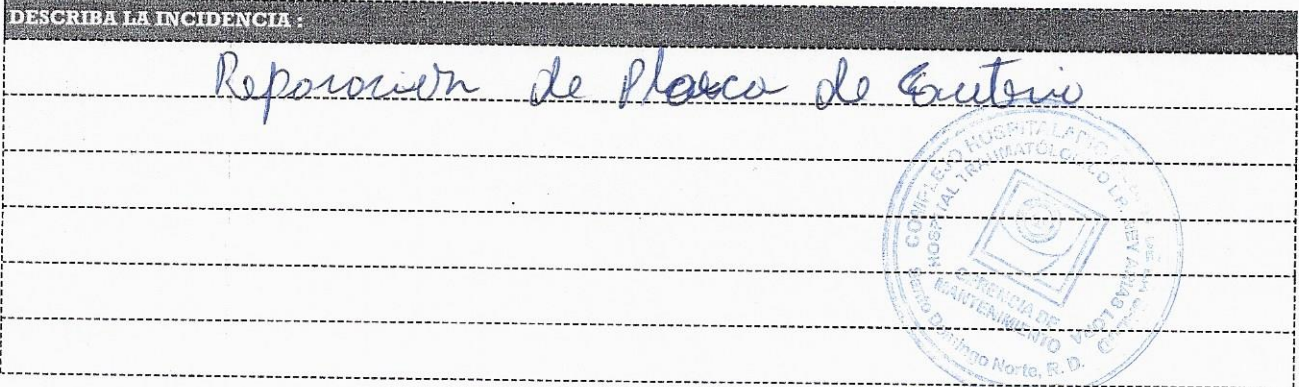 DESCRIBA LA INCIDENCIA :
Reparación de Placa de Cauterio
COMPLEJO HOSPITALARIO
HOSPITAL TRAUMATOLOGICO DR. NEY ARIAS LORA
GERENCIA DE
MANTENIMIENTO
Santo Domingo Norte, R. D.